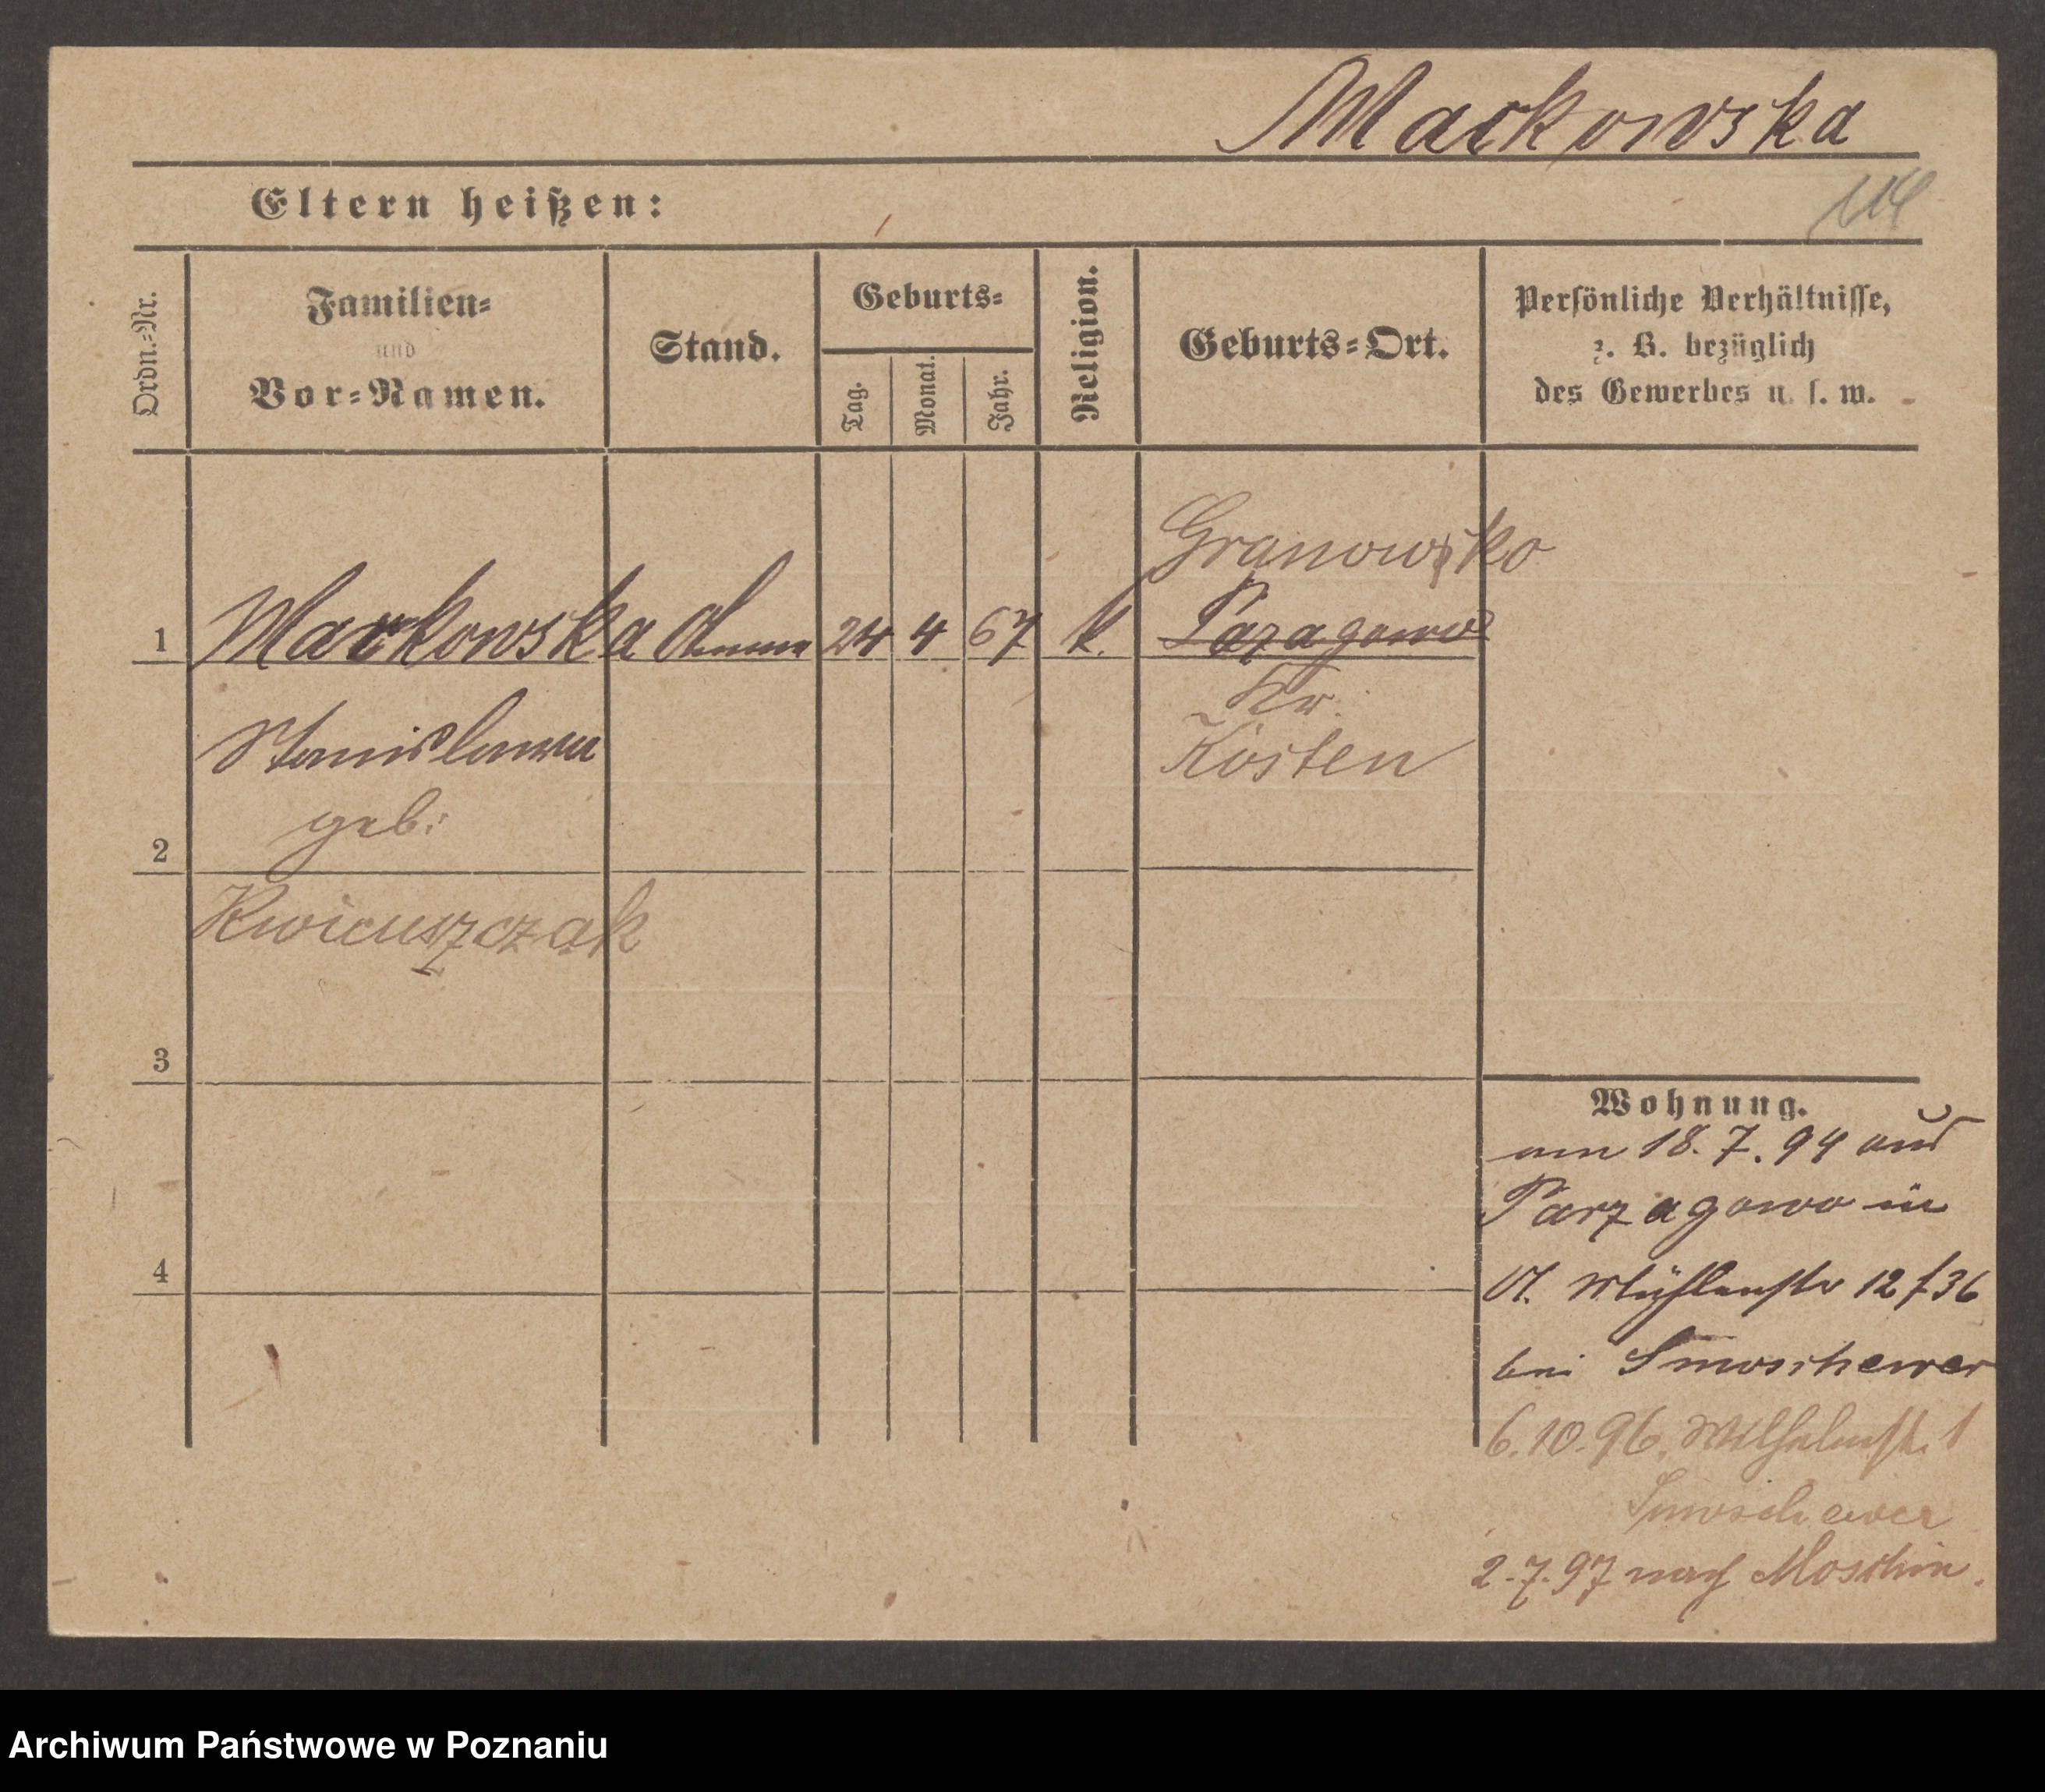 Mackowska
Eltern heißen:
Ordn.-Nr.
Familien-
und
Vor-Namen.
Stand.
Geburts-
Tag.
Monat.
Jahr.
Religion.
Geburts-Ort.
Persönliche Verhältnisse,
z. B. bezüglich
des Gewerbes u. s. w.
Granowko
1 Mackowska Amme 24 4 67 k. Pazagowo
Kr.
Stanislawa Kosten
geb:
2
Kwicuszczak
3
4
Wohnung.
am 18. 7. 94 aus
Parzagowo in
A. Mühlenstr 12 f 36
bei Smoschewer
6.10.96. Wilhelmstr. 1
Smoschewer
2.7.97 nach Moschin.
Archiwum Państwowe w Poznaniu